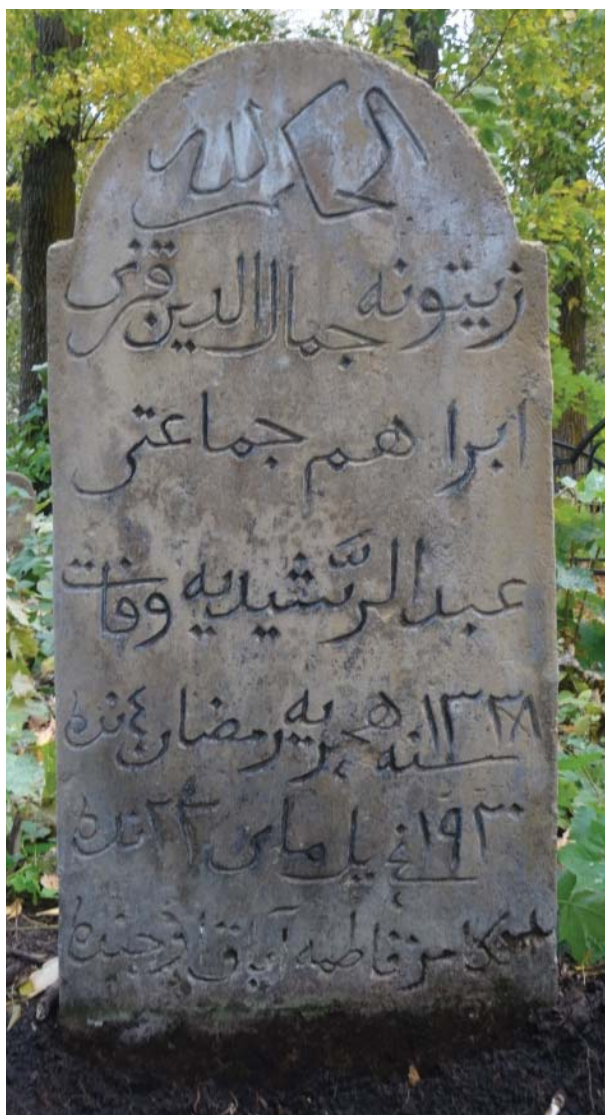 الحكم لله
زيتونه جمال الدين قزى
ابراهم جماعتى
عبد الرّشيديه وفات
١٣٣٨ سنه هجريه رمضان ٤ نده
١٩٢٠ يل ماى ٢٣ نده
فاطمه آياق اوچنده